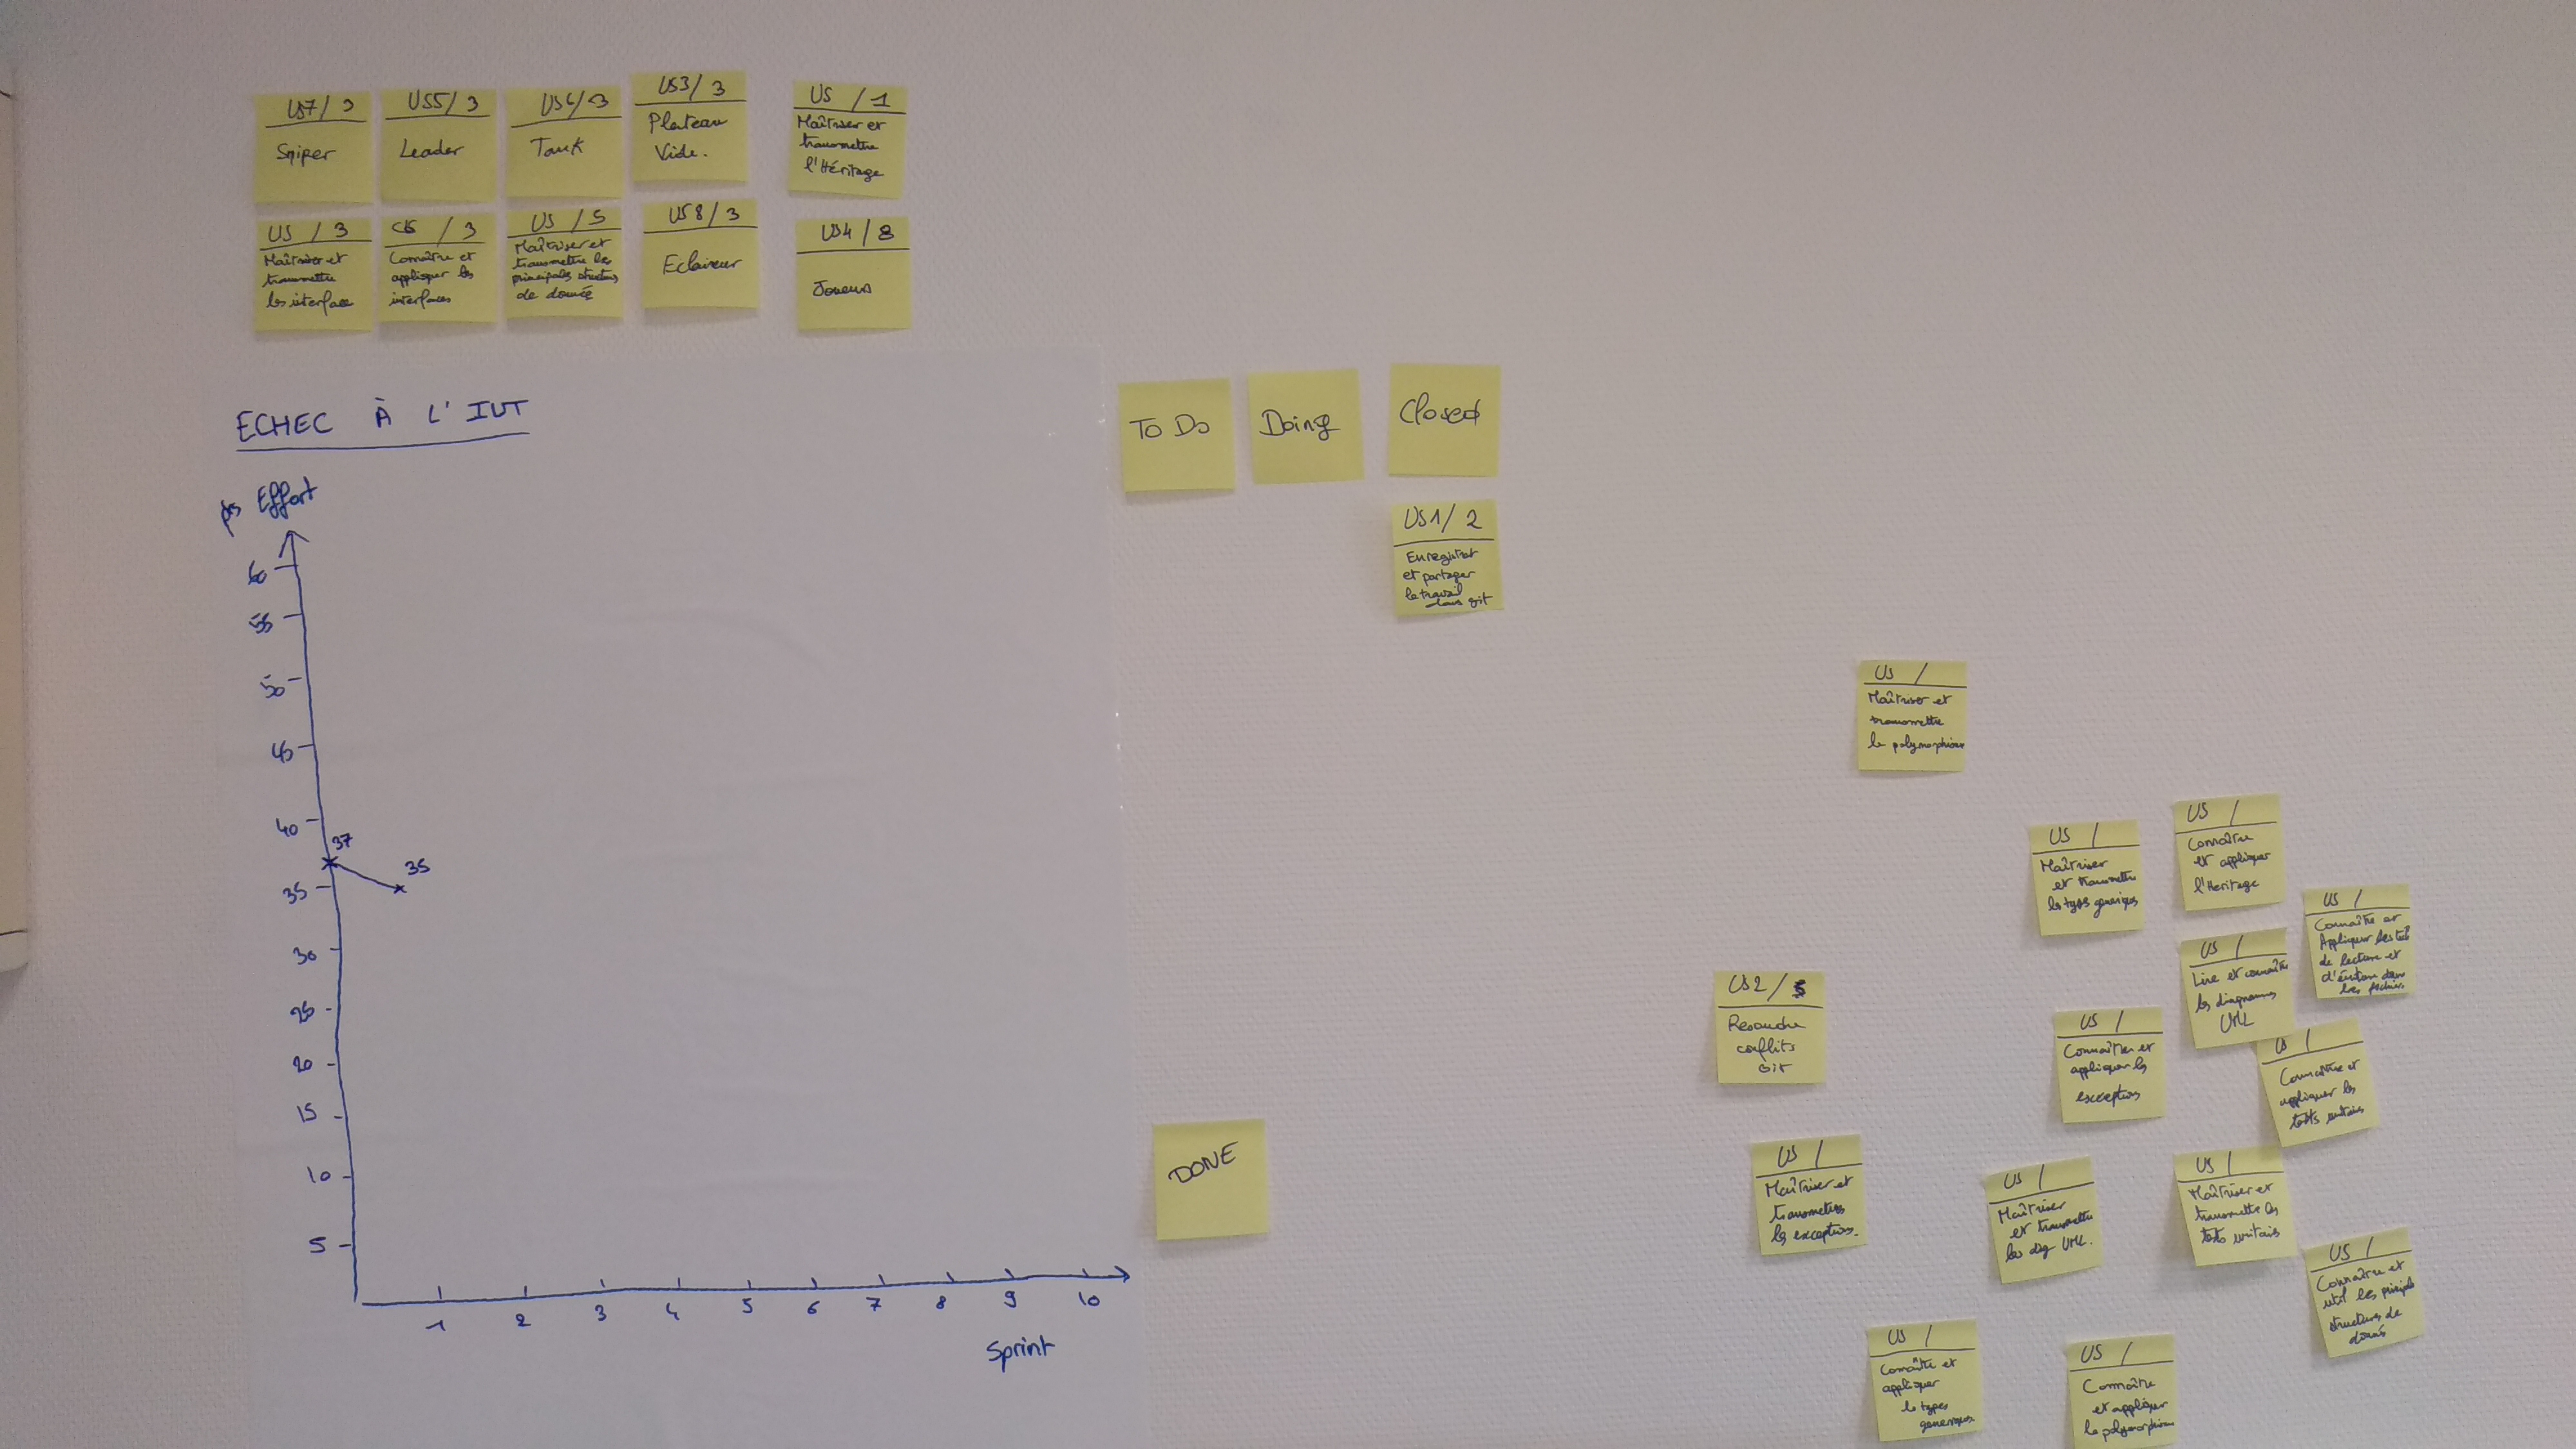 US7/3
Sniper
US5/3
Leader
US6/3
Tank
US3/3
Plateau
Vide.
US /1
Maîtriser et
transmettre
l'Héritage
US /3
Maîtriser et
transmettre
les interface
US /3
Connaître et
appliquer les
interfaces
US /5
Maîtriser et
transmettre les
principales structures
de donnée
US8/3
Eclaireur
US4/8
Joueurs
ECHEC À L'IUT
pts Effort
60
55
50
45
40
37
35
35
30
25
20
15
10
5
1 2 3 4 5 6 7 8 9 10
Sprint
To Do
Doing
Closed
US1/2
Enregistrer
et partager
le travail
dans git
DONE
US /
Maîtriser et
transmettre
le polymorphisme
US /
Maîtriser
et transmettre
les types generiques
US /
Connaître
et appliquer
l'Heritage
US /
Connaître et
Appliquer les
de lecture et
d'écriture dans
les fichiers
US /
Lire et connaître
les diagrammes
UML
US2/5
Resoudre
conflits
Git
US /
Connaître et
appliquer les
exceptions
US /
Connaître et
appliquer les
tests unitaires
US /
Maîtriser et
transmettre
les exceptions.
US /
Maîtriser
et transmettre
les diag UML.
US /
Maîtriser et
transmettre les
tests unitaires
US /
Connaître et
util les principales
structures de
donnés
US /
Connaître et
appliquer
le types
generiques
US /
Connaître
et appliquer
le polymorphisme